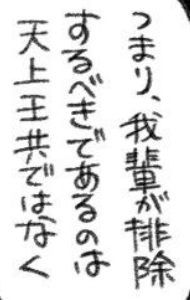 つまり、我輩が排除
するべきであるのは
天上王共ではなく